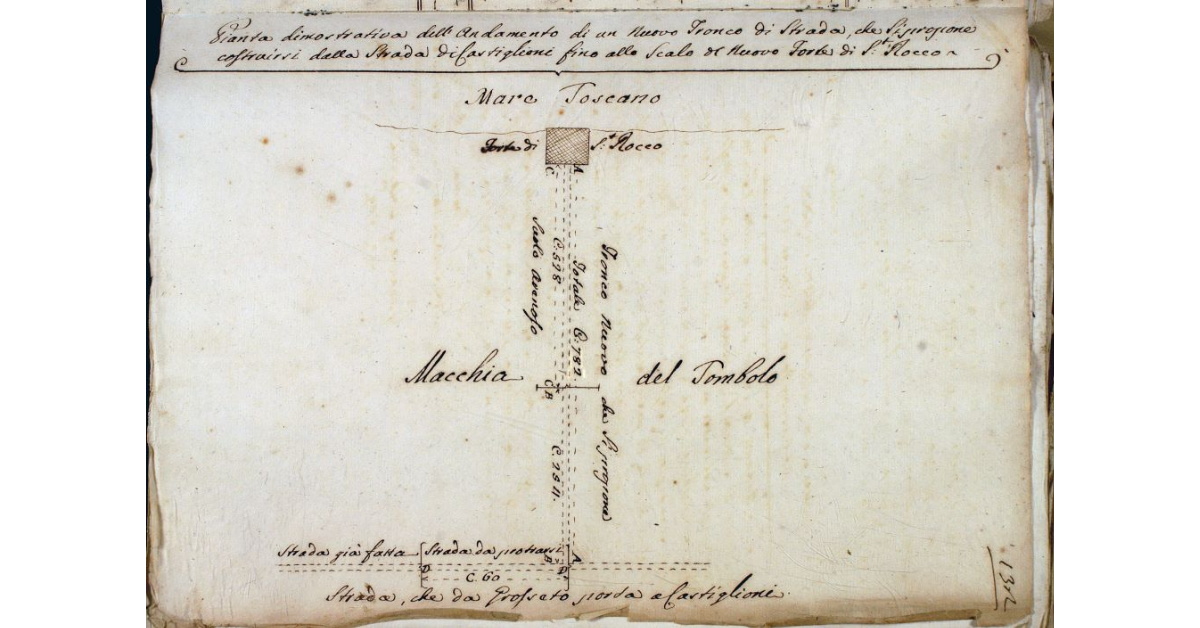 Pianta dimostrativa dell'Andamento di un Nuovo Tronco di Strada, che Si propone
costruirsi dalla Strada di Castiglioni fino allo Scalo del Nuovo Forte di S.t Rocco
Mare Toscano
Forte di S.t Rocco
C A
Suolo Arenoso
C. 598
Totale C. 782.
Tronco Nuovo che Si propone
Macchia del Tombolo
C B
Strada già fatta Strada da protrarsi
B A
D D
C. 60
Strada, che da Grosseto porta a Castiglioni.